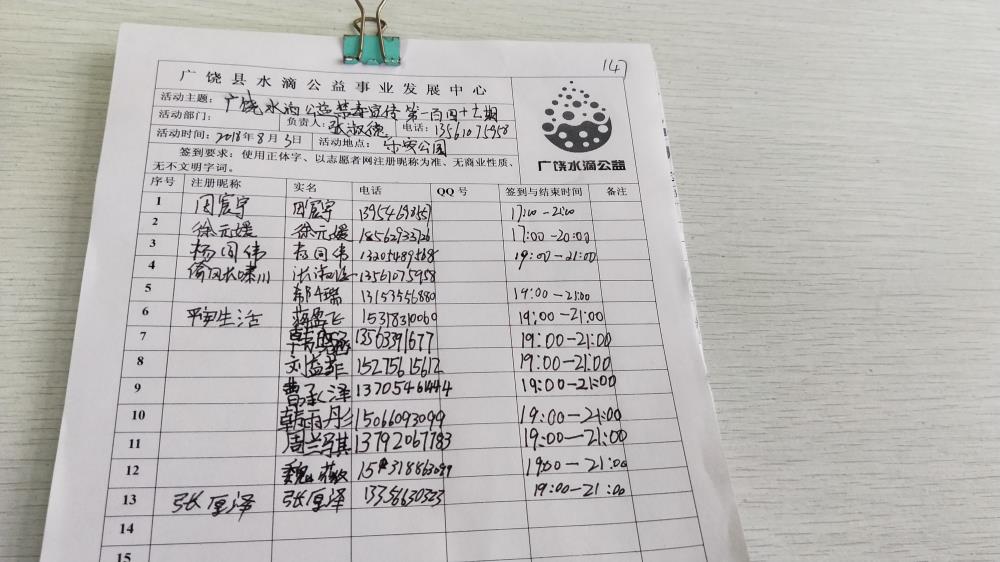 147
广饶县水滴公益事业发展中心
活动主题：广饶水滴公益禁毒宣传第一百四十七期
活动部门： 负责人：张淑德 电话：13561075958
活动时间：2018年8月3日 活动地点：乐安公园
签到要求：使用正体字、以志愿者网注册昵称为准、无商业性质、
无不文明字词。
广饶水滴公益
序号 注册昵称 实名 电话 QQ号 签到与结束时间 备注
1 周宸宇 周宸宇 17:00-21:00
2 徐元媛 徐元媛 17:00-20:00
3 杨同伟 杨同伟 13205489568 19:00-21:00
4 13561075958
5 13153556880 19:00-21:00
6 15318310060 19:00-21:00
7 13563391677 19:00-21:00
8 刘益菲 15275615612 19:00-21:00
9 曹承泽 13705461444 19:00-21:00
10 韩雨彤 15066093099 19:00-21:00
11 周兰琪 13792067783 19:00-21:00
12 魏 19:00-21:00
13 张厚泽 张厚泽 19:00-21:00
14
15